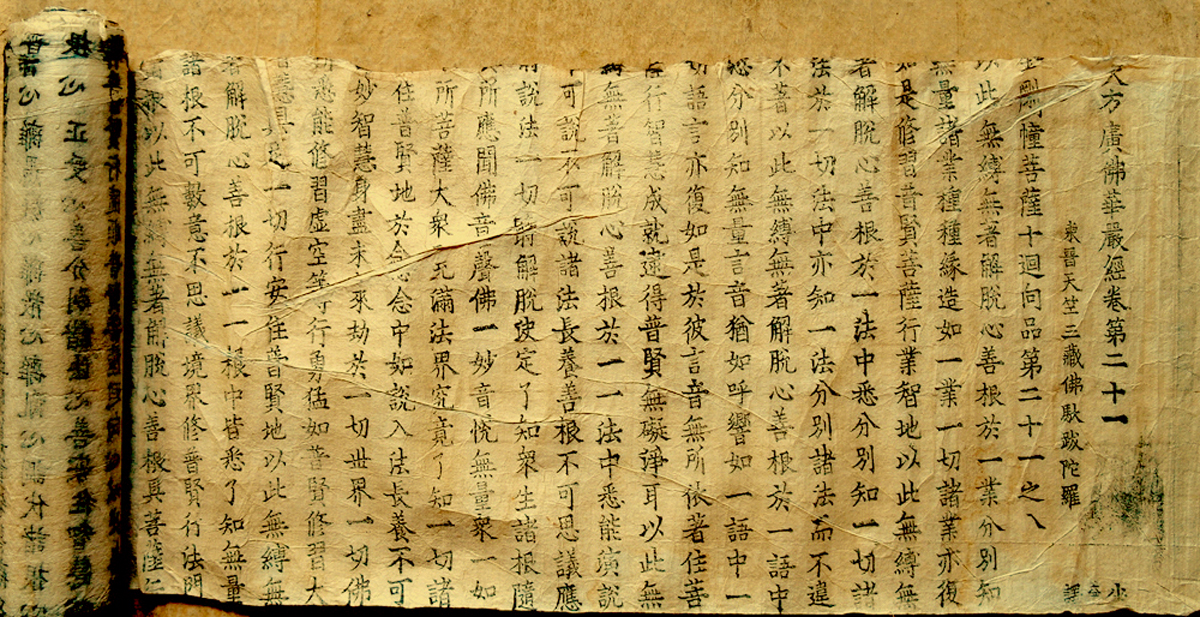 大方廣佛華嚴經卷第二十一 少
東晋天竺三藏佛馱跋陀羅 譯
金剛幢菩薩十迴向品第二十一之八
以此無縛無著解脫心善根於一業分別知
無量諸業種種緣造如一業一切諸業亦復
如是修習普賢菩薩行業智地以此無縛無
著解脫心善根於一法中悉分別知一切諸
法於一切法中亦知一法分別諸法而不違
不著以此無縛無著解脫心善根於一語中
悉分別知無量言音猶如呼響如一語中一
切語言亦復如是於彼言音無所依著住菩
行智慧成就逮得普賢無礙淨耳以此無
縛無著解脫心善根於一一法中悉能演說
不可說不可說諸法長養善根不可思議應
時說法一切時解脫決定了知衆生諸根隨
其所應聞佛音聲佛一妙音悅無量衆一如
所菩薩大衆充滿法界究竟了知一切諸
住普賢地於念念中如說入法長養不可
妙智慧身盡未來劫於一切世界一切佛
切悉能修習虛空等行勇猛如普賢修習大
智慧具足一切行安住普賢地以此無縛無
者解脫心善根於一一根中皆悉了知無量
諸根不可數意不思議境界修普賢行法門
根以此無縛無著解脫心善根具菩薩無
根心正受心善分別諸法心善安住智慧
心離散心離亂心調伏諸根心